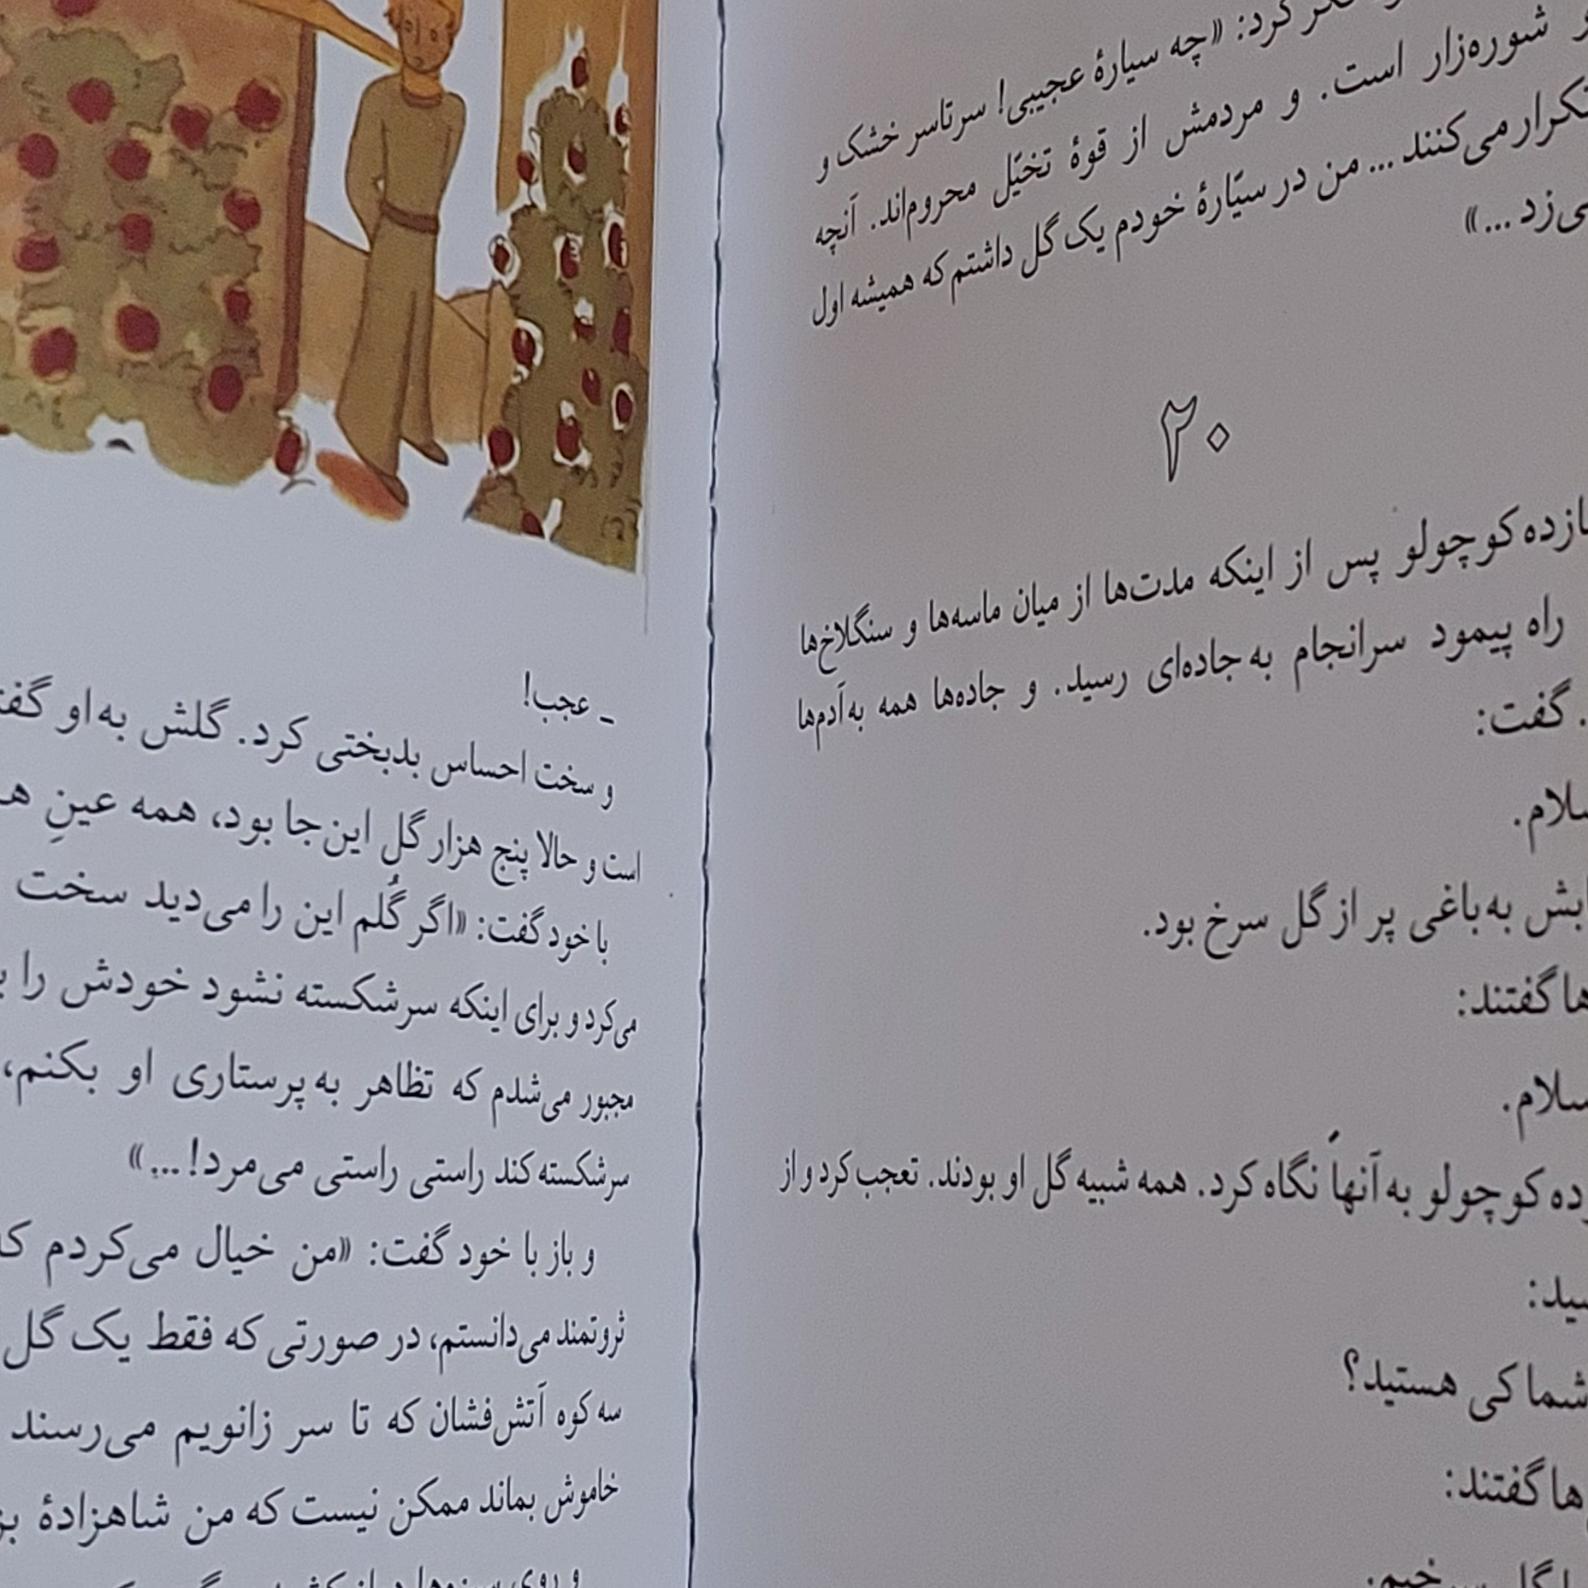 کرد: «چه سیارهٔ عجیبی! سرتاسر خشک و
شوره‌زار است. و مردمش از قوهٔ تخیّل محروم‌اند. آنچه
تکرار می‌کنند ... من در سیّارهٔ خودم یک گل داشتم که همیشه اول
می‌زد ...»
۲۰
کوچولو پس از اینکه مدت‌ها از میان ماسه‌ها و سنگلاخ‌ها
راه پیمود سرانجام به جاده‌ای رسید. و جاده‌ها همه به آدم‌ها
گفت:
سلام.
به باغی پر از گل سرخ بود.
گفتند:
سلام.
کوچولو به آنها نگاه کرد. همه شبیه گل او بودند. تعجب کرد و از
شما کی هستید؟
گفتند:
گل سرخیم:
ـ عجب!
و سخت احساس بدبختی کرد. گلش به او
است و حالا پنج هزار گل این‌جا بود، همه عینِ
با خود گفت: «اگر گُلم این را می‌دید سخت
می‌کرد و برای اینکه سرشکسته نشود خودش را
مجبور می‌شدم که تظاهر به پرستاری او بکنم،
سرشکسته کند راستی راستی می‌مرد! ...»
و باز با خود گفت: «من خیال می‌کردم که
ثروتمند می‌دانستم، در صورتی که فقط یک گل
سه کوه آتش‌فشان که تا سر زانویم می‌رسند
خاموش بماند ممکن نیست که من شاهزادهٔ
و روی